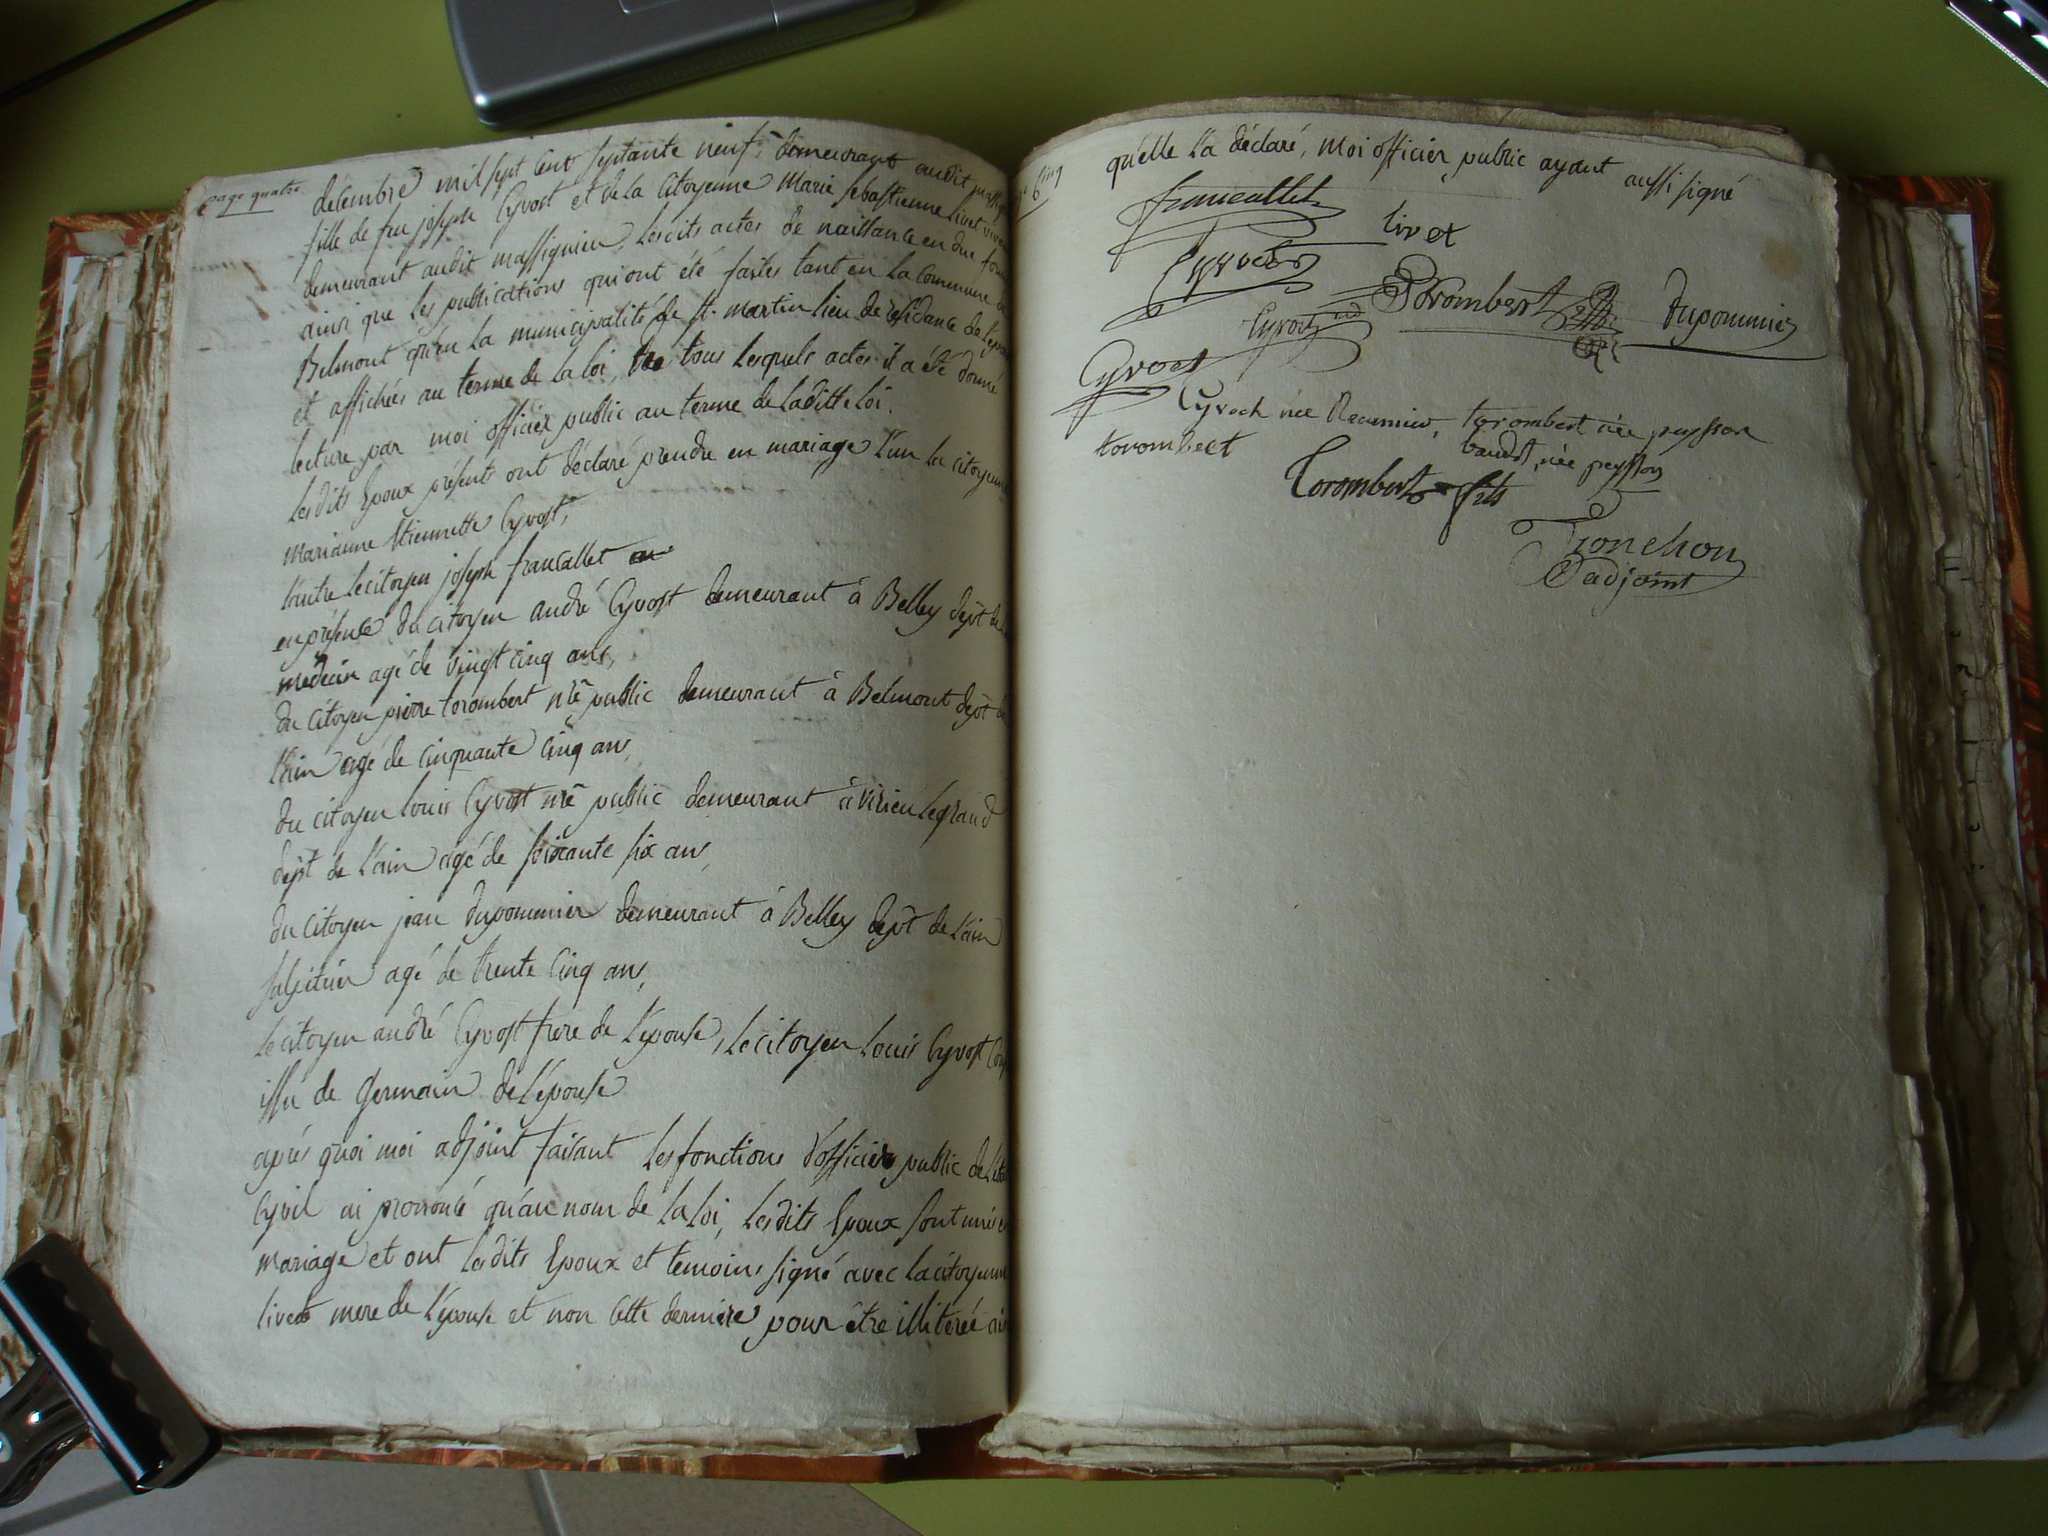 page quatre
décembre mil sept cent septante neuf, demeurant audit
fille de feu joseph Cyvost et de la Citoyenne Marie sebastienne livet
demeurant audit massignieu, lesdits actes de naissance en due forme
ainsi que les publications qui ont été faites tant en la commune de
Belmont qu'en la municipalité de st. martin lieu de residance de
et affichés au terme de la loi, de tous lesquels actes il a été donné
lecture par moi officier public au terme de laditte loi.
lesdits Epoux présents ont déclaré prendre en mariage l'un la citoyenne
marianne Etiennette Cyvost,
l'autre le citoyen joseph francallet
en présence du citoyen andré Cyvost demeurant à Belley dept de
médecin agé de vingt cinq ans,
du citoyen pierre torombert nre public demeurant à Belmont dept de
l'ain agé de cinquante cinq ans,
du citoyen louis Cyvost nre public demeurant à virieu legrand
dept de l'ain agé de soixante six ans,
du citoyen jean dupommier demeurant à Belley dept de l'ain
agé de trente cinq ans,
le citoyen andré Cyvost frere de l'épouse, le citoyen louis Cyvost
issu de germain de l'épouse
après quoi moi adjoint faisant les fonctions d'officier public de
Cyvil ai prononcé qu'au nom de la loi, lesdits Epoux sont unis en
mariage et ont lesdits Epoux et temoins signé avec la citoyenne
livet mere de l'épouse et non cette derniére pour être illiterée
qu'elle l'a déclaré, moi officier public ayant aussi signé
francallet
livet
Cyvoct
Torombert
dupommier
Cyvoct
Cyvoct
Cyvoct née Recamier, torombert née peysson
torombert
baudst née peysson
Torombert fils
Tronchon
adjoint